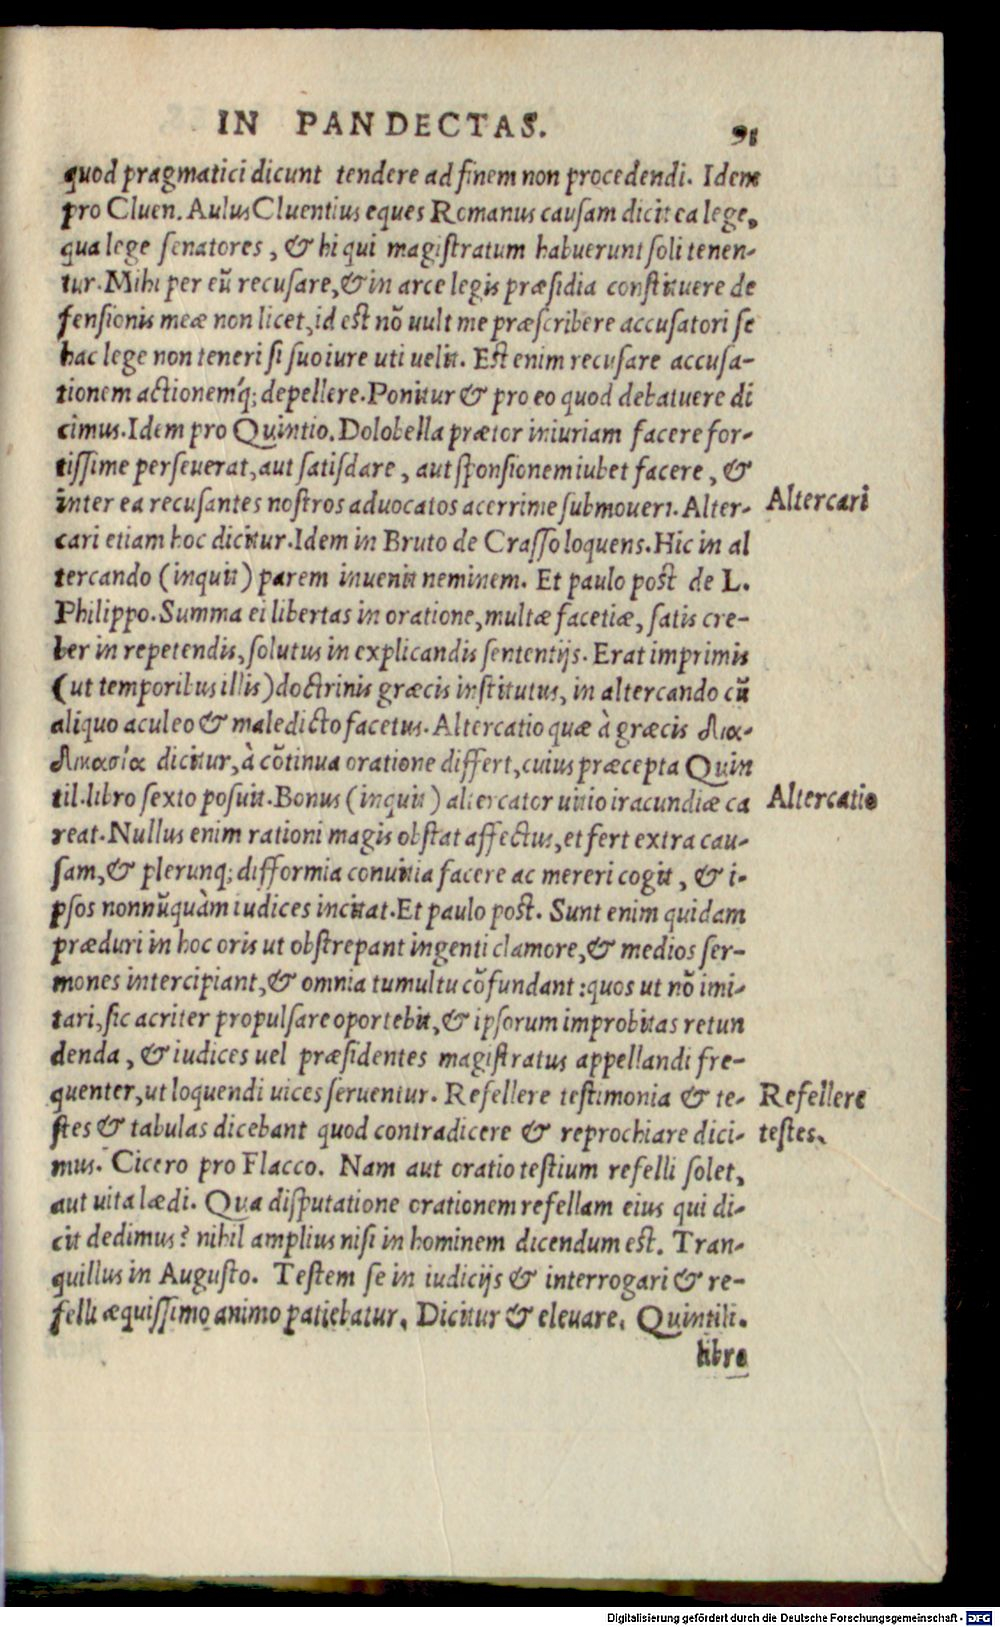 IN PANDECTAS. 91
quod pragmatici dicunt tendere ad finem non procedendi. Idem
pro Cluen. Aulus Cluentius eques Romanus causam dicit ea lege,
qua lege senatores, & hi qui magistratum habuerunt soli tenen-
tur. Mihi per eū recusare, & in arce legis præsidia constituere de
fensionis meæ non licet, id est nō uult me præscribere accusatori se
hac lege non teneri si suo iure uti uelit. Est enim recusare accusa-
tionem actionem'q; depellere. Ponitur & pro eo quod debatuere di
cimus. Idem pro Quintio. Dolobella prætor iniuriam facere for-
tissime perseuerat, aut satisdare, aut sponsionem iubet facere, &
inter ea recusantes nostros aduocatos acerrime submoueri. Alter-
Altercari
cari etiam hoc dicitur. Idem in Bruto de Crasso loquens. Hic in al
tercando (inquit) parem inuenit neminem. Et paulo post de L.
Philippo. Summa ei libertas in oratione, multæ facetiæ, satis cre-
ber in repetendis, solutus in explicandis sententijs. Erat imprimis
(ut temporibus illis) doctrinis græcis institutus, in altercando cū
aliquo aculeo & maledicto facetus. Altercatio quæ à græcis δια-
δικασία dicitur, à cōtinua oratione differt, cuius præcepta Quin
til. libro sexto posuit. Bonus (inquit) altercator uitio iracundiæ ca
Altercatio
reat. Nullus enim rationi magis obstat affectus, et fert extra cau-
sam, & plerunq; difformia conuitia facere ac mereri cogit, & i-
psos nonnūquàm iudices incitat. Et paulo post. Sunt enim quidam
præduri in hoc oris ut obstrepant ingenti clamore, & medios ser-
mones intercipiant, & omnia tumultu cōfundant: quos ut nō imi-
tari, sic acriter propulsare oportebit, & ipsorum improbitas retun
denda, & iudices uel præsidentes magistratus appellandi fre-
quenter, ut loquendi uices seruentur. Refellere testimonia & te-
Refellere
stes & tabulas dicebant quod contradicere & reprochiare dici-
testes.
mus. Cicero pro Flacco. Nam aut oratio testium refelli solet,
aut uita lædi. Qua disputatione orationem refellam eius qui di-
cit dedimus? nihil amplius nisi in hominem dicendum est. Tran-
quillus in Augusto. Testem se in iudicijs & interrogari & re-
felli æquissimo animo patiebatur. Dicitur & eleuare. Quintili.
libro
Digitalisierung gefördert durch die Deutsche Forschungsgemeinschaft - DFG